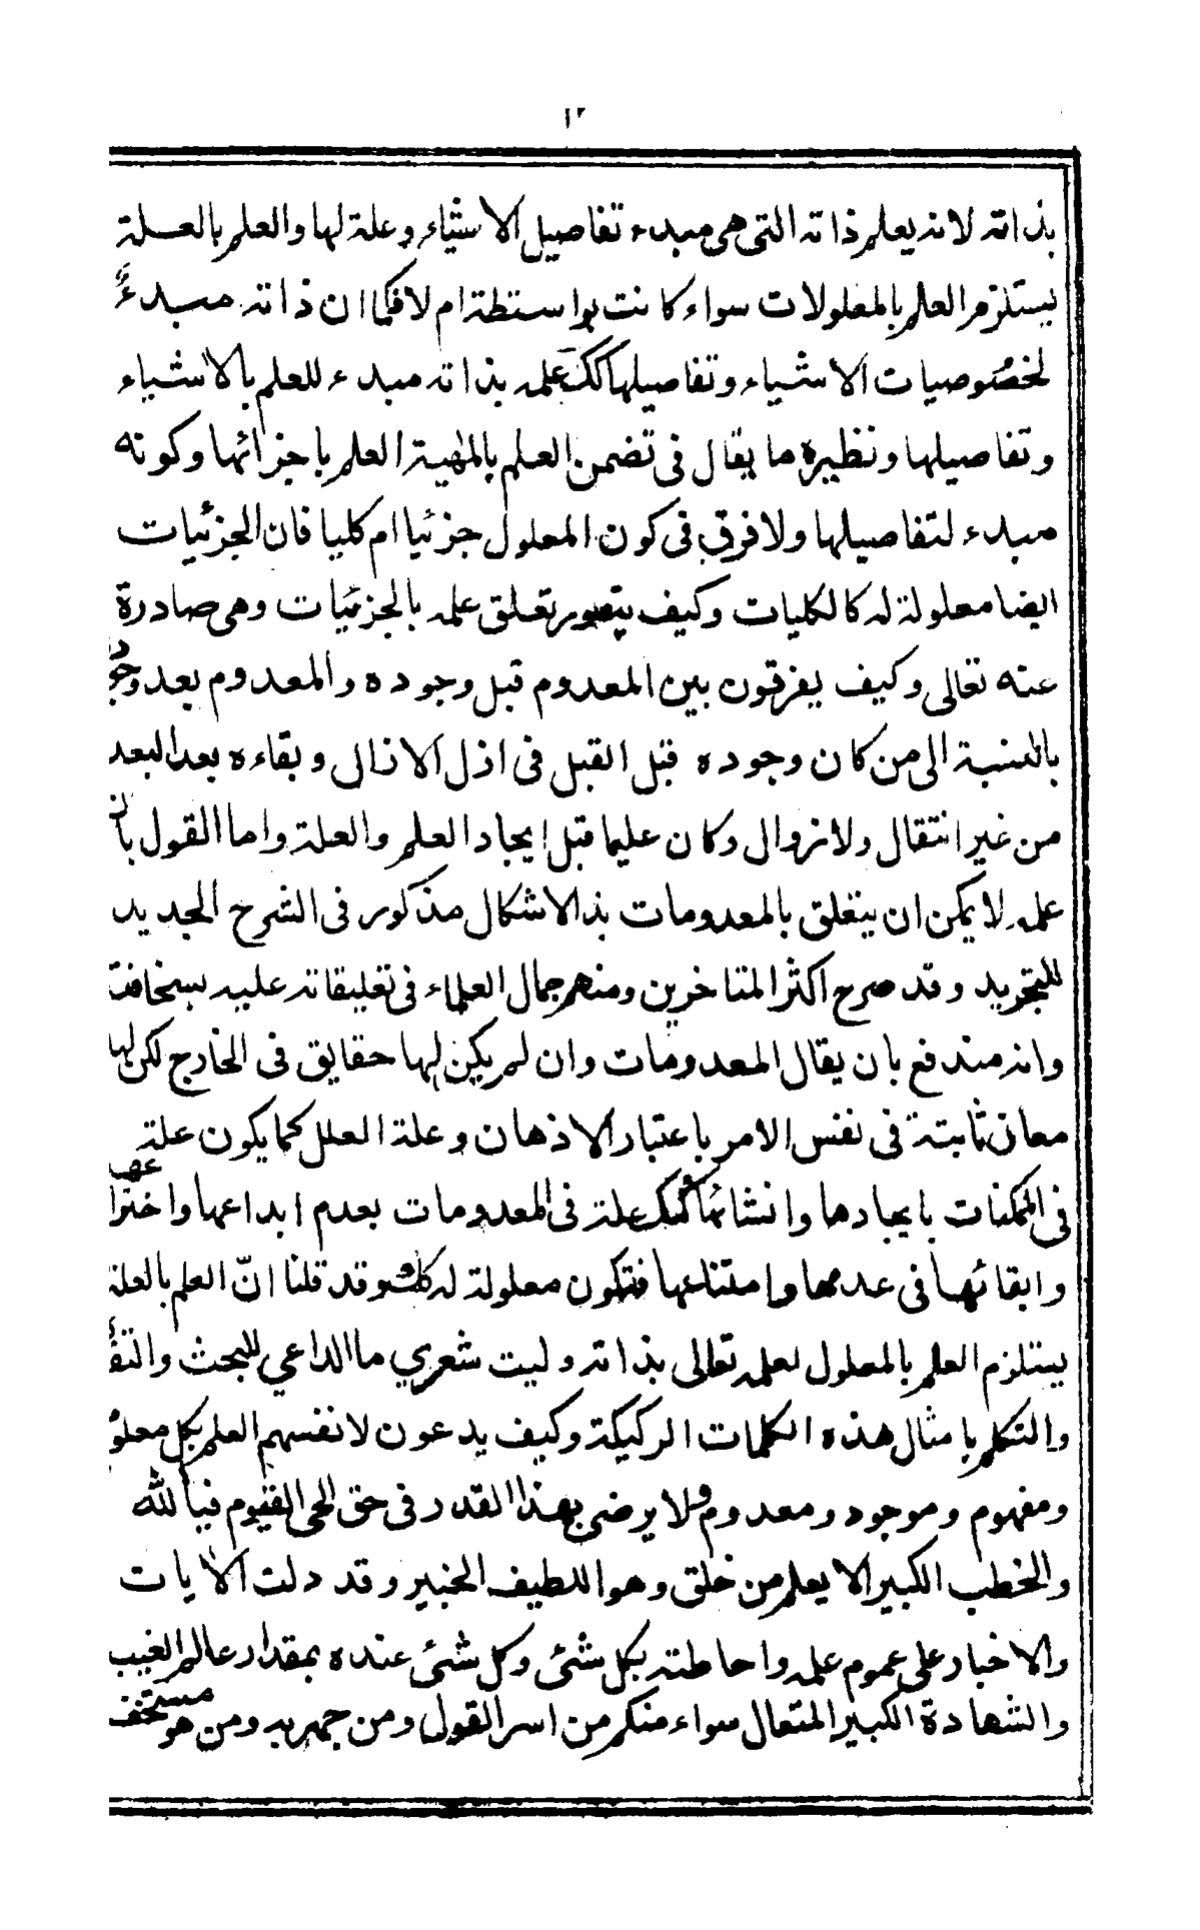 ١٢
بذاته لانه يعلم ذاته التى هى مبدء تفاصيل الاشياء وعلة لها والعلم بالعلة
يستلزم العلم بالمعلولات سواء كانت بواسطة ام لا فكما ان ذاته مبدءً
لخصوصيات الاشياء وتفاصيلها كك علمه بذاته مبدء للعلم بالاشياء
وتفاصيلها ونظيره ما يقال فى تضمن العلم بالمهية العلم باجزائها وكونه
مبدء لتفاصيلها ولا فرق فى كون المعلول جزئيا ام كليا فان الجزئيات
ايضا معلولة له كالكليات وكيف يتصور تعلق علمه بالجزئيات وهى صادرة
عنه تعالى وكيف يفرقون بين المعدوم قبل وجوده والمعدوم بعد وجود
بالنسبة الى من كان وجوده قبل القبل فى ازل الازال وبقاءه بعد البعد
من غير انتقال ولا زوال وكان عليما قبل ايجاد العلم والعلة واما القول بان
علمه لا يمكن ان يتعلق بالمعدومات بذ الاشكال مذكور فى الشرح الجديد
للتجريد وقد صرح اكثر المتاخرين ومنهم جمال العلماء فى تعليقاته عليه بسخافت
وانه مندفع بان يقال المعدومات وان لم يكن لها حقايق فى الخارج لكن لها
معان ثابتة فى نفس الامر باعتبار الاذهان وعلة العلل كما يكون علة
فى الممكنات بايجادها وانشائها كك علة فى المعدومات بعدم ابداعها واختراعها
وابقائها فى عدمها وامتناعها فتكون معلولة له كلها وقد قلنا انّ العلم بالعلة
يستلزم العلم بالمعلول لعلمه تعالى بذاته وليت شعري ما الداعي للبحث والتف
والتكلم بامثال هذه الكلمات الركيكة وكيف يدعون لانفسهم العلم بكل معلو
ومفهوم وموجود ومعدوم ولا يرضى بهذا القدر فى حق الحى القيوم فيا لله
والخطب الكبير الا يعلم من خلق وهو اللطيف الخبير وقد دلت الايات
والاخبار على عموم علمه واحاطته بكل شئى وكل شئى عنده بمقدار عالم الغيب
والشهادة الكبير المتعال سواء منكم من اسر القول ومن جهر به ومن هو مستخف